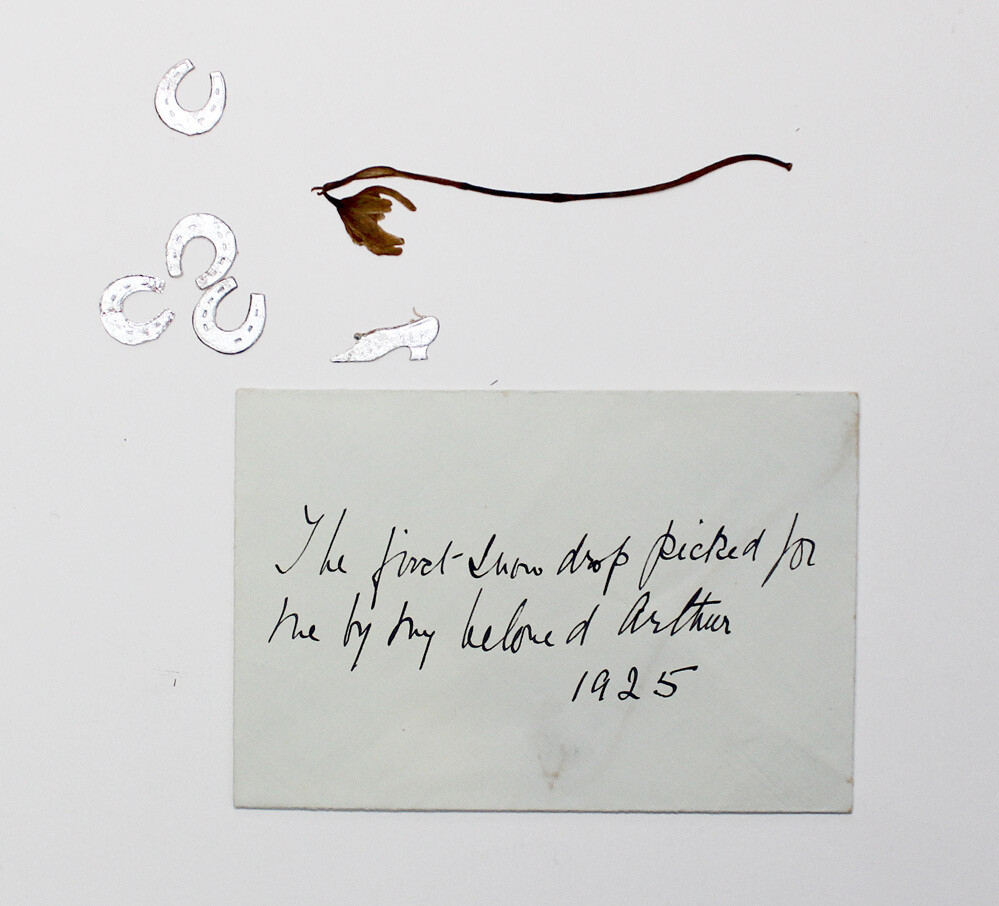 The first Snow drop picked for
me by my beloved Arthur
1925